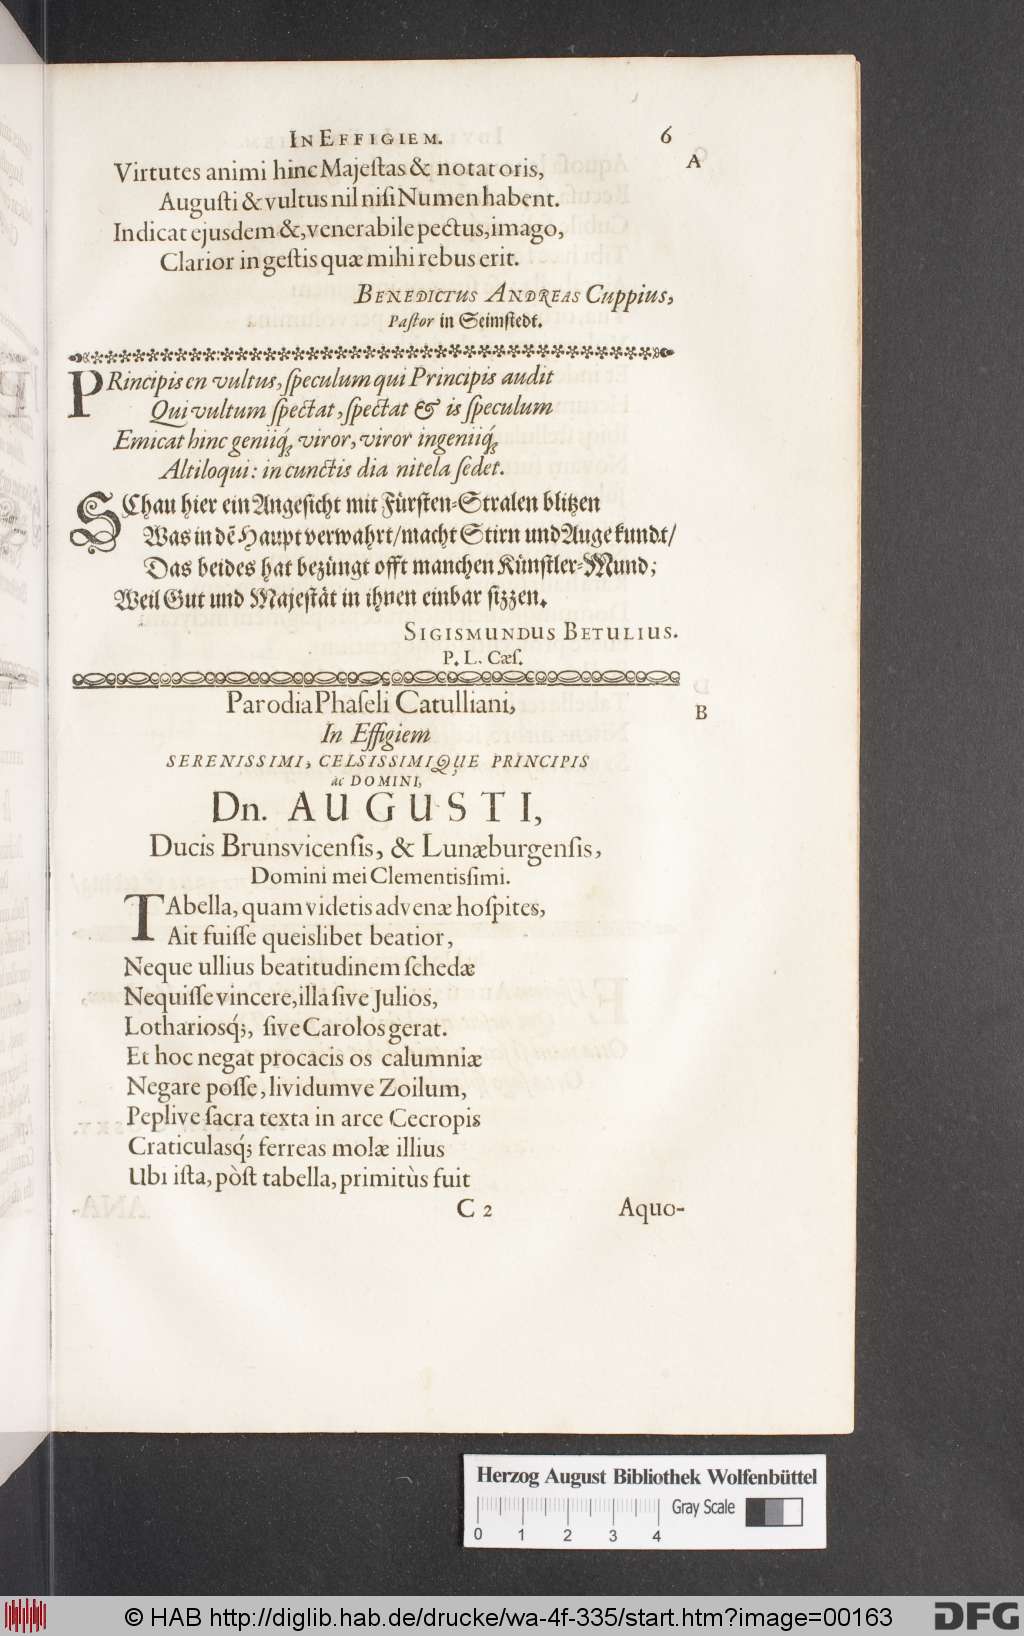 IN EFFIGIEM. 6
A
Virtutes animi hinc Majeſtas & notat oris,
Auguſti & vultus nil niſi Numen habent.
Indicat ejusdem &, venerabile pectus, imago,
Clarior in geſtis quæ mihi rebus erit.
BENEDICTUS ANDREAS Cuppius,
Paſtor in Seimſtedt.
PRincipis en vultus, ſpeculum qui Principis audit
Qui vultum ſpectat, ſpectat & is ſpeculum
Emicat hinc geniiq́ꝫ viror, viror ingeniiq́ꝫ
Altiloqui: in cunctis dia nitela ſedet.
SChau hier ein Angeſicht mit Fürſten-Stralen blitzen
Was in dē Haupt verwahrt/macht Stirn und Auge kundt/
Das beides hat bezüngt offt manchen Künſtler-Mund;
Weil Gut und Majeſtät in ihnen einbar ſizzen.
SIGISMUNDUS BETULIUS.
P. L. Cæſ.
Parodia Phaſeli Catulliani,
B
In Effigiem
SERENISSIMI, CELSISSIMIQUE PRINCIPIS
ac DOMINI,
Dn. AUGUSTI,
Ducis Brunsvicenſis, & Lunæburgenſis,
Domini mei Clementisſimi.
TAbella, quam videtis advenæ hoſpites,
Ait fuiſſe queislibet beatior,
Neque ullius beatitudinem ſchedæ
Nequiſſe vincere, illa ſive Julios,
Lothariosq́;, ſive Carolos gerat.
Et hoc negat procacis os calumniæ
Negare poſſe, lividumve Zoilum,
Peplive ſacra texta in arce Cecropis
Craticulasq́; ferreas molæ illius
Ubi iſta, pòſt tabella, primitùs fuit
C 2 Aquo-
Herzog August Bibliothek Wolfenbüttel
Gray Scale
0 1 2 3 4
© HAB http://diglib.hab.de/drucke/wa-4f-335/start.htm?image=00163 DFG